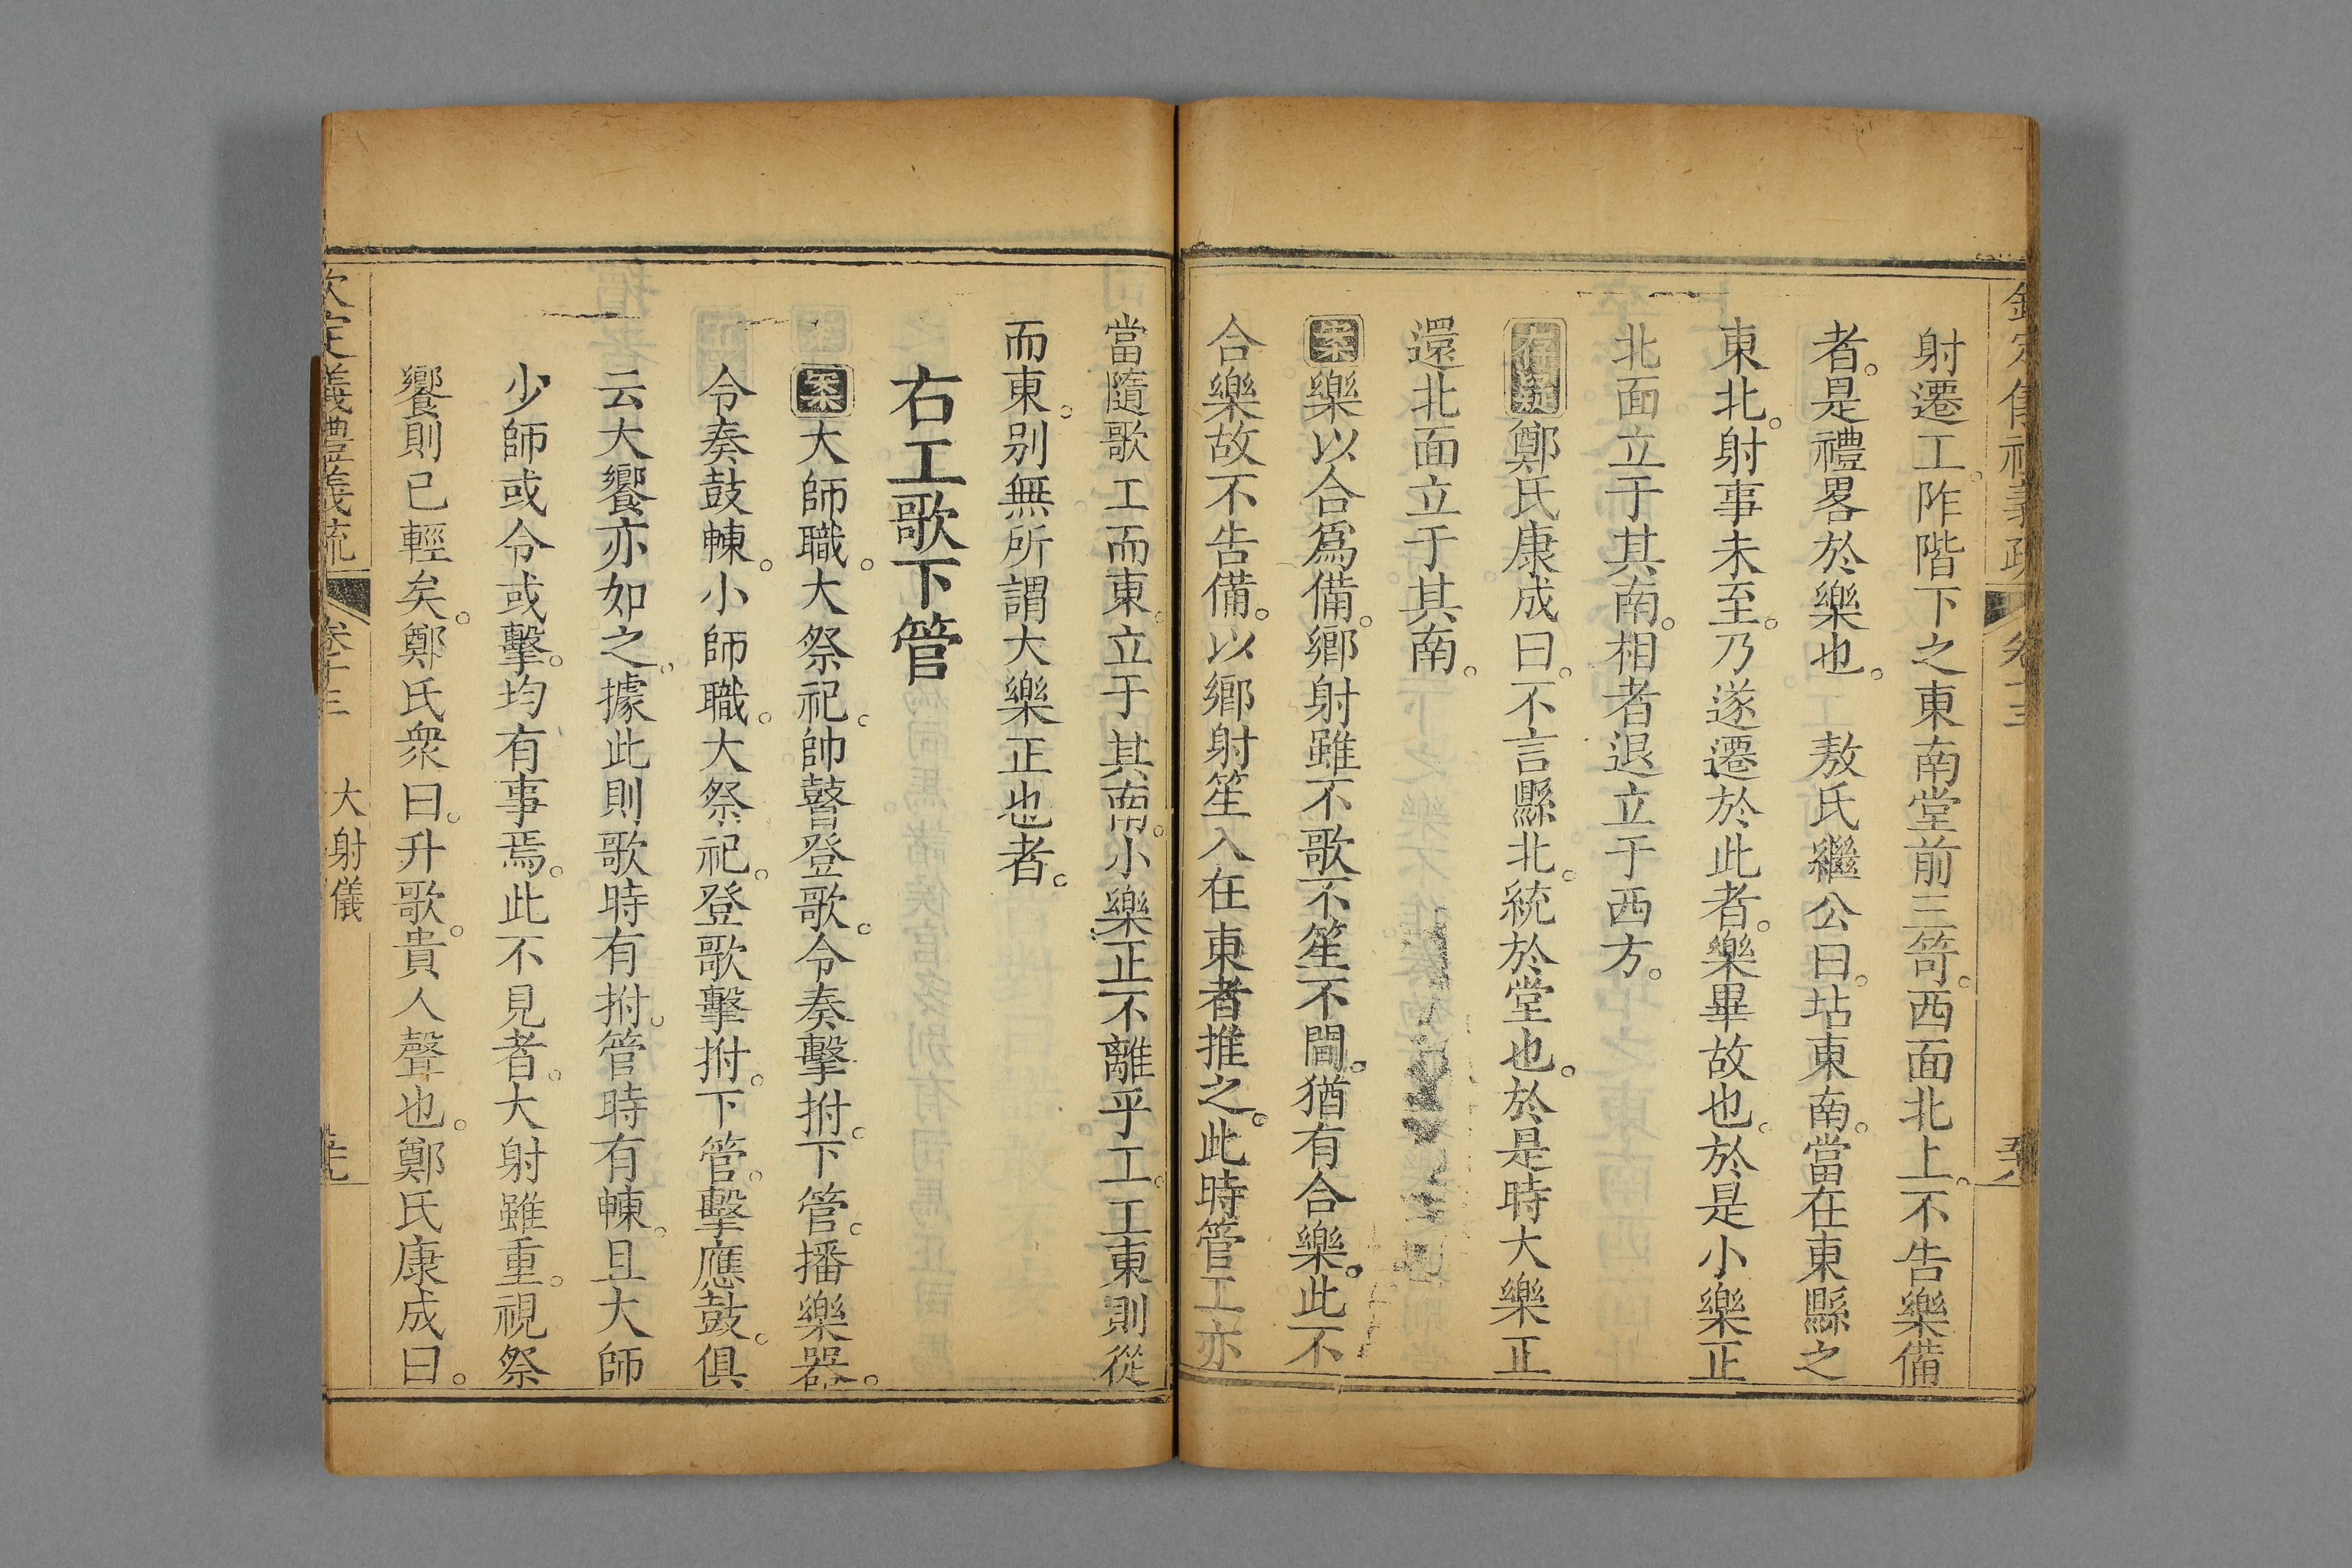 欽定儀禮義疏 卷十三
射遷工。阼階下之東南堂前三笴。西面北上。不告樂備
者。是禮畧於樂也。 敖氏繼公曰。坫東南。當在東縣之
東北。射事未至。乃遂遷於此者。樂畢故也。於是小樂正
北面立于其南。相者退立于西方。
存疑鄭氏康成曰。不言縣北。統於堂也。於是時大樂正
還北面立于其南。
案樂以合爲備。鄉射雖不歌不笙不閒。猶有合樂。此不
合樂故不告備。以鄉射笙入在東者推之。此時管工亦
當隨歌工而東。立于其南。小樂正不離乎工。工東則從
而東。別無所謂大樂正也者。
右工歌下管
案大師職。大祭祀。帥瞽登歌。令奏擊拊。下管。播樂器。
令奏鼓朄。小師職。大祭祀。登歌擊拊。下管。擊應鼓。俱
云大饗亦如之。據此則歌時有拊。管時有朄。且大師
少師或令或擊。均有事焉。此不見者。大射雖重。視祭
饗則已輕矣。鄭氏衆曰。升歌。貴人聲也。鄭氏康成曰。
欽定儀禮義疏 卷十三 大射儀